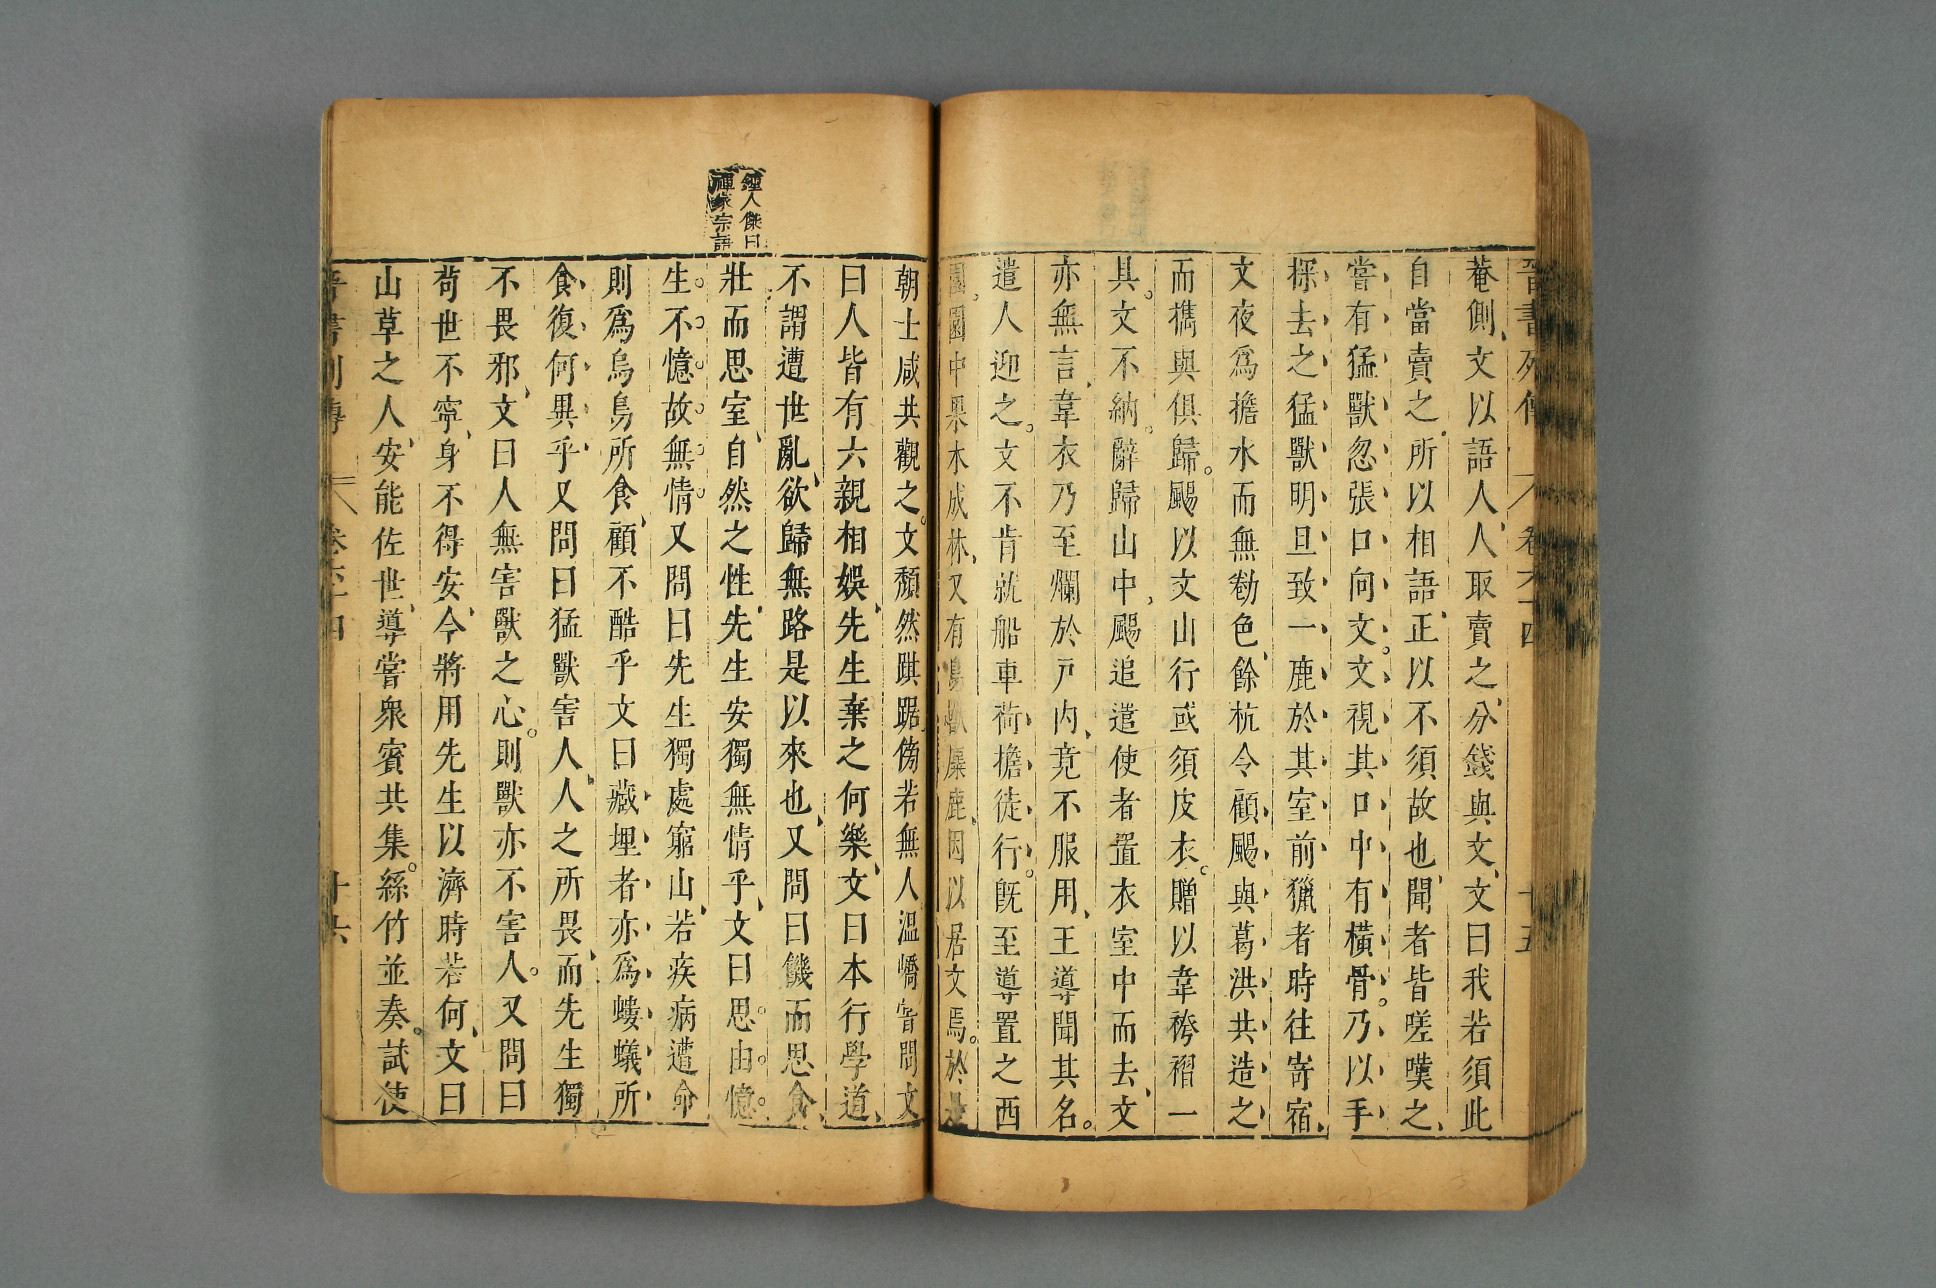 晉書列傳 卷六十四 十五
菴側文以語人人取賣之分錢與文文曰我若須此
自當賣之所以相語正以不須故也聞者皆嗟嘆之
嘗有猛獸忽張口向文文視其口中有橫骨乃以手
探去之猛獸明旦致一鹿於其室前獵者時往寄宿
文夜爲擔水而無勌色餘杭令顧颺與葛洪共造之
而㩦與俱歸颺以文山行或須皮衣贈以韋袴褶一
具文不納辭歸山中颺追遣使者置衣室中而去文
亦無言韋衣乃至爛於戸內竟不服用王導聞其名
遣人迎之文不肯就船車荷擔徒行旣至導置之西
園園中果木成林又有鳥獸麋鹿因以居文焉於是
朝士咸共觀之文頹然踑踞傍若無人溫嶠甞問文
曰人皆有六親相娛先生棄之何樂文曰本行學道
不謂遭世亂欲歸無路是以來也又問曰饑而思食
壯而思室自然之性先生安獨無情乎文曰思由憶
生不憶故無情又問曰先生獨處窮山若疾病遭命
則爲烏鳥所食顧不酷乎文曰藏埋者亦爲螻蟻所
食復何異乎又問曰猛獸害人人之所畏而先生獨
不畏邪文曰人無害獸之心則獸亦不害人又問曰
苟世不寧身不得安今將用先生以濟時若何文曰
山草之人安能佐世導嘗衆賓共集絲竹並奏試使
晉書列傳 卷六十四 十六
鍾人傑曰
禪家宗語